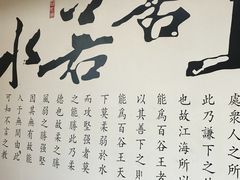 上善若水
處眾人之所
此乃謙下之
也故江海所以
能為百谷王者
以其善下之則
能為百谷王天
下莫柔弱於水
而攻堅強者莫
之能勝此乃柔
德也故柔之勝
剛弱之勝強堅
因其無有故能
入於無間由此
可知不言之教